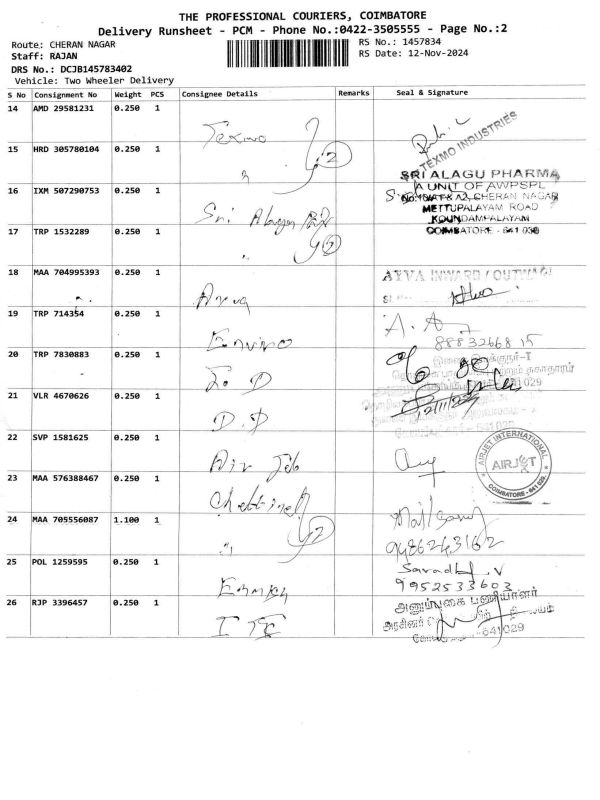 THE PROFESSIONAL COURIERS, COIMBATORE
Delivery Runsheet - PCM - Phone No.:0422-3505555 - Page No.:2
Route: CHERAN NAGAR
RS No.: 1457834
Staff: RAJAN
RS Date: 12-Nov-2024
DRS No.: DCJB145783402
Vehicle: Two Wheeler Delivery
S No Consignment No Weight PCS Consignee Details Remarks Seal & Signature
14 AMD 29581231 0.250 1
Texmo 2
TEXMO INDUSTRIES
15 HRD 305780104 0.250 1
"
SRI ALAGU PHARMA
A UNIT OF AWPSPL
16 IXM 507290753 0.250 1
CHERAN NAGAR
METTUPALAYAM ROAD
Sri Alagu 2
KOUNDAMPALAYAM
17 TRP 1532289 0.250 1
COIMBATORE - 641 030
"
18 MAA 704995393 0.250 1
AYVA INWARD / OUTWARD
Ayva
19 TRP 714354 0.250 1
A. A
8883266815
Enviro
20 TRP 7830883 0.250 1
641 029
21 VLR 4670626 0.250 1
D.D
22 SVP 1581625 0.250 1
AIRJET INTERNATIONAL
AIRJET
COIMBATORE - 641 029
Air Jet
23 MAA 576388467 0.250 1
Chettinad 2
24 MAA 705556087 1.100 1
"
9486243162
25 POL 1259595 0.250 1
9952533603
26 RJP 3396457 0.250 1
அனுப்புகை பணியாளர்
641029
ITC